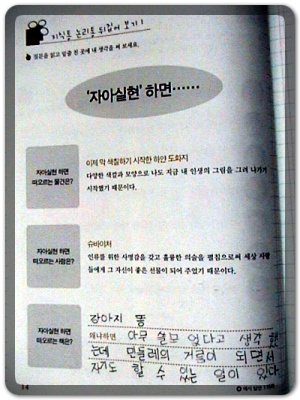 지식통 논리통 뒤집어 보기 1
질문을 읽고 밑줄 친 곳에 내 생각을 써 보세요.
'자아실현' 하면……
자아실현 하면
떠오르는 물건은?
이제 막 색칠하기 시작한 하얀 도화지
다양한 색깔과 모양으로 나도 지금 내 인생의 그림을 그려 나가기
시작했기 때문이다.
자아실현 하면
떠오르는 사람은?
슈바이처
인류를 위한 사명감을 갖고 훌륭한 의술을 펼침으로써 세상 사람
들에게 그 자신이 좋은 선물이 되어 주었기 때문이다.
자아실현 하면
떠오르는 책은?
강아지 똥
왜냐하면 아무 쓸모 없다고 생각 했
는데 민들레의 거름이 되면서
자기도 할 수 있는 일이 있다
14
예시 답안